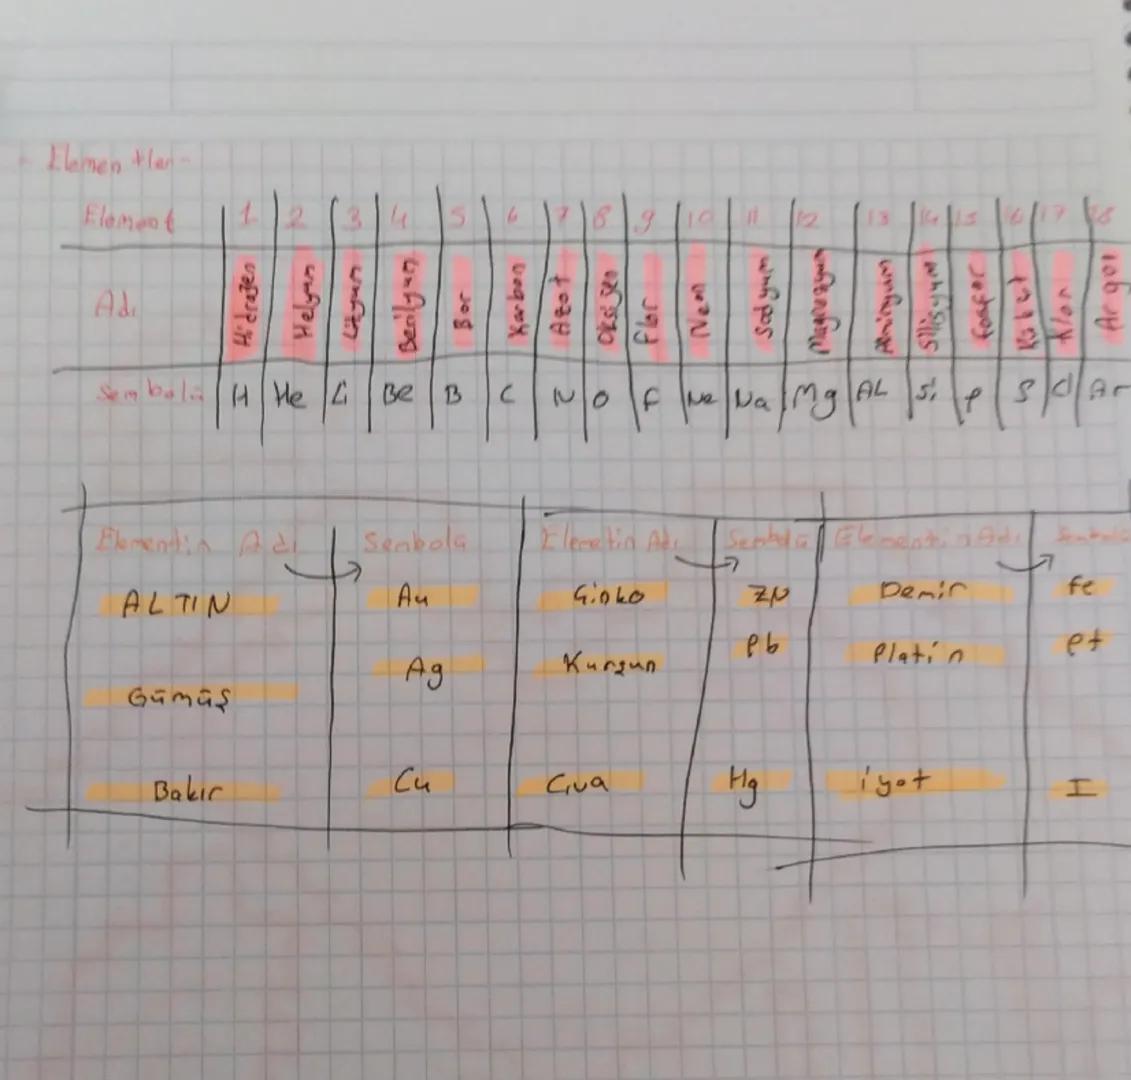 - Elementler -
Element 1 2 3 4 5 6 7 8 9 10 11 12 13 14 15 16 17 18
Adı Hidrojen Helyum Lityum Berilyum Bor Karbon Azot Oksijen Flor Neon Sodyum Magnezyum Alminyum Silisyum Fosfor Kükürt Klor Argon
Sembolü H He Li Be B C N O F Ne Na Mg AL Si P S Cl Ar
Elementin Adı Sembolü Elemetin Adı Sembolü Elementin Adı Sembolü
ALTIN Au Çinko ZN Demir Fe
Gümüş Ag Kurşun Pb Platin Pt
Bakır Cu Cıva Hg iyot I